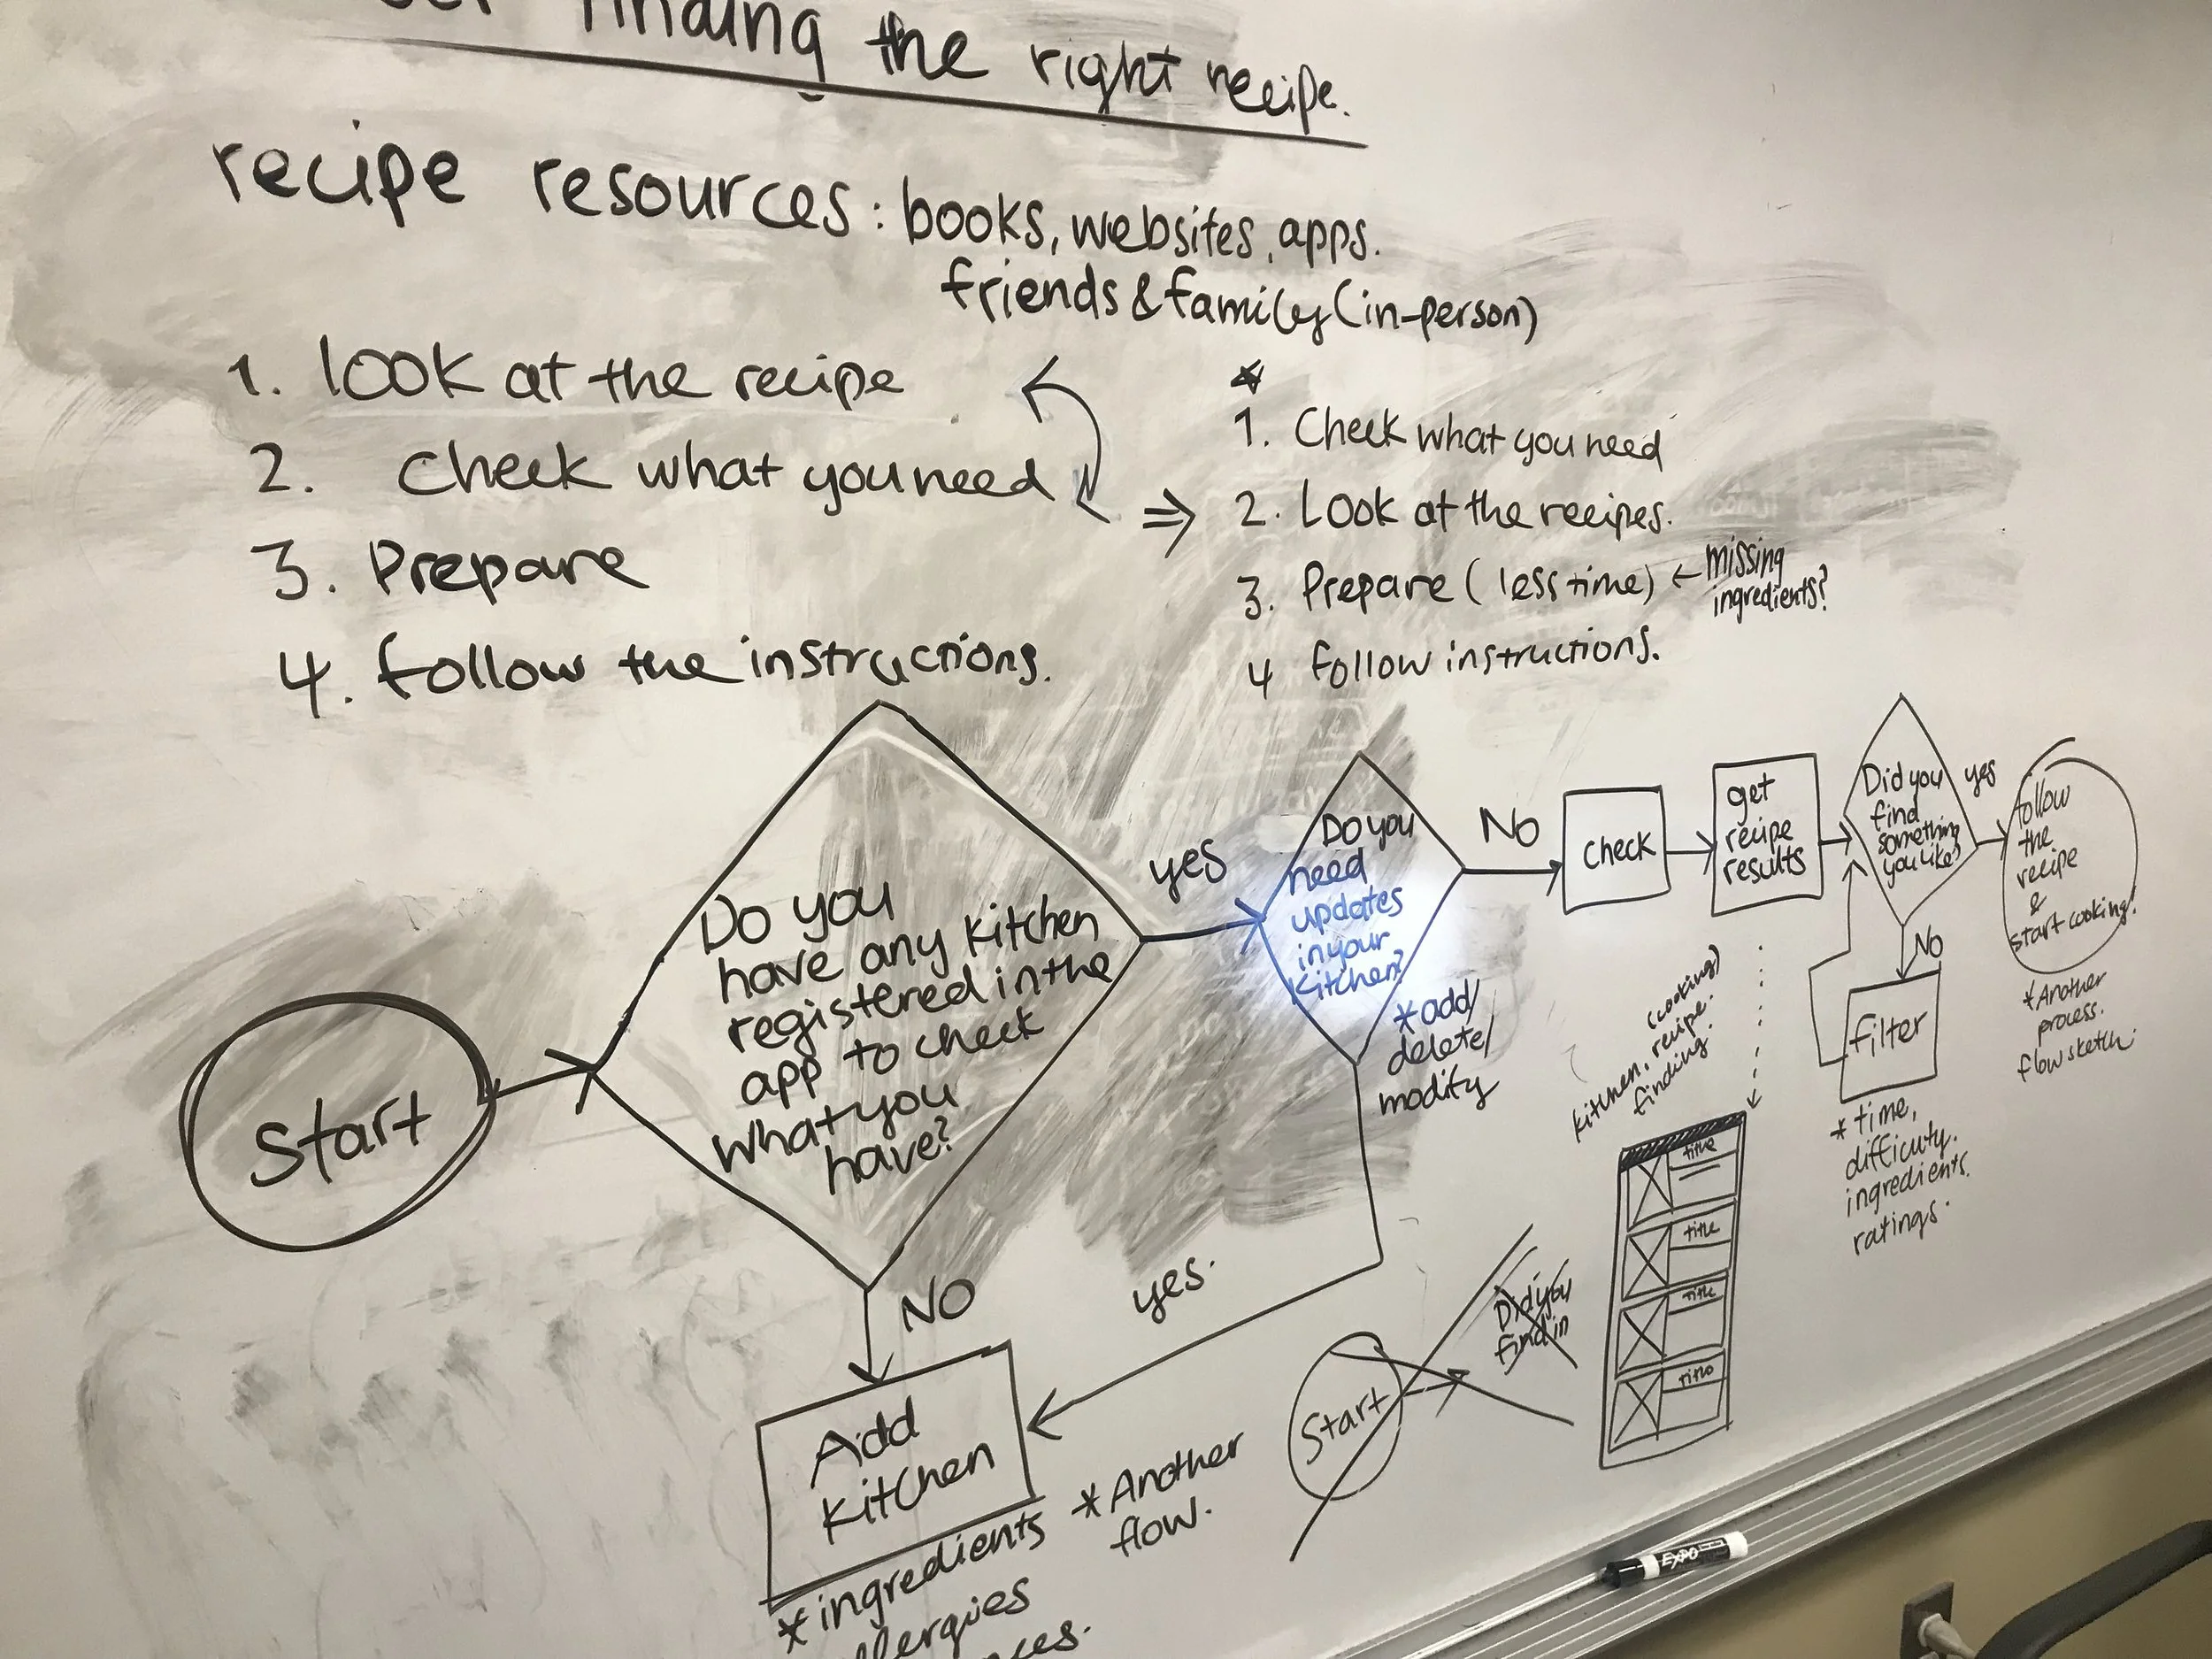 finding the right recipe.
recipe resources: books, websites, apps.
friends & family (in-person)
1. look at the recipe
2. Check what you need
3. Prepare
4. follow the instructions.
*
1. Check what you need
2. Look at the recipes.
3. Prepare (less time) ← missing
ingredients?
4 Follow instructions.
Start
Do you
have any kitchen
registered in the
app to check
what you
have?
yes
NO
Add
Kitchen
*ingredients
*Another
flow.
Do you
need
updates
in your
kitchen?
*add/
delete/
modify
yes.
No
Check
get
recipe
results
Did you
find
something
you like?
yes
follow
the
recipe
&
start cooking!
*Another
process.
flow sketch.
No
filter
*time,
difficuty.
ingredients.
ratings.
(cooking)
kitchen, recipe.
finding.
title
title
title
title
Start
Did you
find in
EXPO